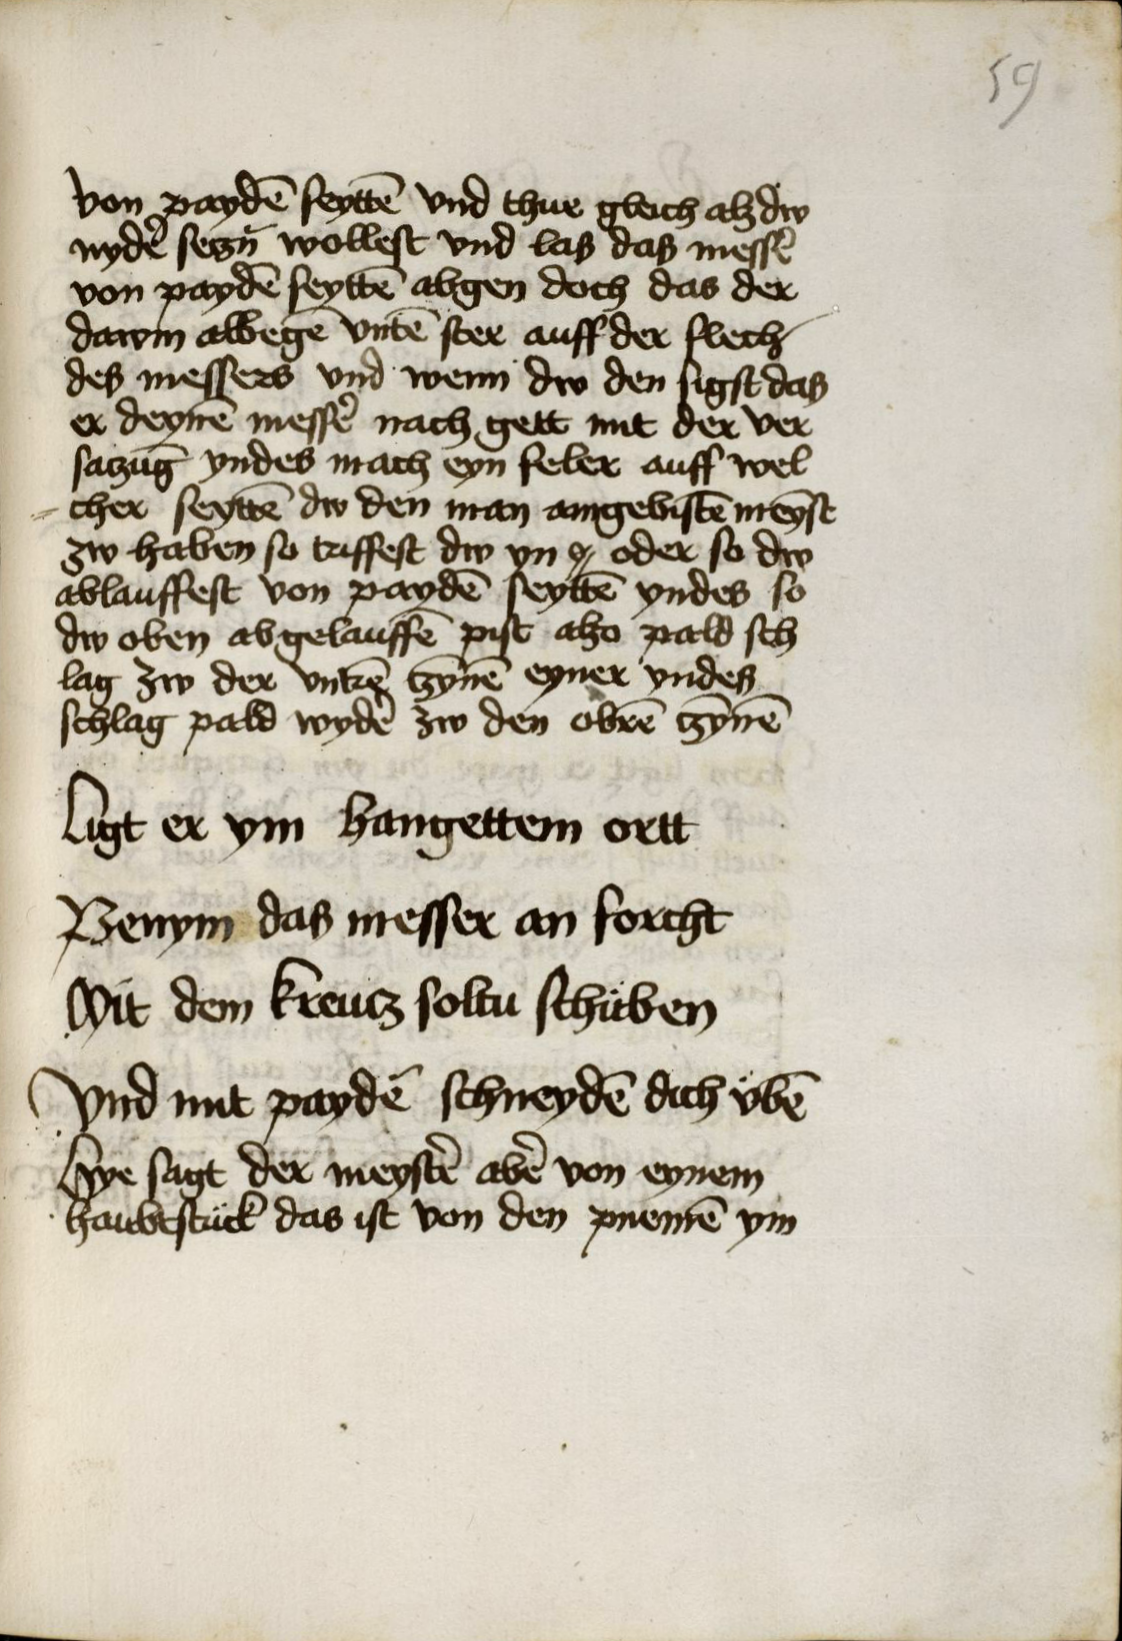 59
von paydē seyttē vnd thue gleich alz dw
nydē seczn̄ wollest vnd las das messē
von paydē seyttē abgen doch das der
dawm albegē vntē ster auff der flech
des messers vnd wenn dw den sigst das
er deynē messē nach gett mit der ver
saczūg yndes mach eyn feler auff wel
cher seyttē dw den man amgebistē meynst
zw haben so triffest dw yn oder so dw
ablauffest von paydē seyttē yndes so
dw oben ab gelauffē pist alzo pald sch
lag zw der vntrē tzynē eyner yndes
schlag pald wydē zw den obrē tzynē
Ligt er ym hangettem ortt
Benym das messer an forcht
Mit dem kreucz soltu schüben
Vnd mit paydē schneydē dich vbē
Hye sagt der meystē abē von eynem
haubtstück das ist von den pnemē ym